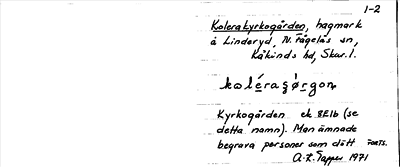 1-2
Kolerakyrkogården, hagmark
å Linderyd, N. Fågelås sn,
Kåkinds hd, Skar. l.
Kyrkogården ek 8E1b (se
detta namn). Man ämnade
begrava personer som dött FORTS.
A.-L. Tapper 1971